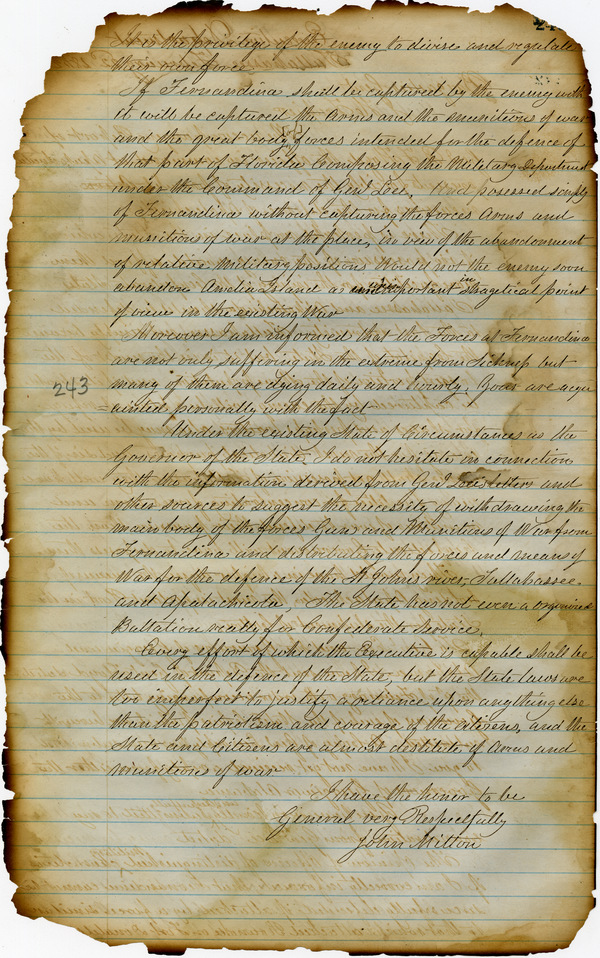 24
It is the privilege of the enemy to divise and regulate
their own force.
If Fernandina shall be captured by the enemy with
it will be captured the Arms and the munition of war
and the great body of forces intended for the defence of
that part of Florida Composing the Military Department
under the Command of Genl Lee. And posessed simply
of Fernandina without capturing the forces Arms and
munitions of war at the place, in view of the abandonment
of relative Military positions Would not the enemy soon
abandon Amelia Island as unimportant in Stragetical point
of view in the existing War
Moreover I am informed that the Forces at Fernandina
are not only suffering in the extreme from Sickness but
243
many of them are dying daily and hourly. You are acqu
=ainted personally with the fact
Under the existing State of Circumstances as the
Governor of the State I do not hesitate in connection
with the information derived from Genl Lee's letters and
other sources to suggest the necessity of withdrawing the
main body of the forces Guns and Munitions of War from
Fernandina and distributing the forces and means of
War for the defence of the St Johns river, Tallahassee
and Apalachicola, The State has not even a organized
Battalion ready for Confederate Service.
Every effort of which the Executive is capable shall be
used in the defence of the State, but the State laws are
too imperfect to justify a reliance upon anything else
than the patriotism and courage of the citizens, and the
State and Citizens are almost destitute of Arms and
munitions of war
I have the honor to be
General very Respectfully
John Milton